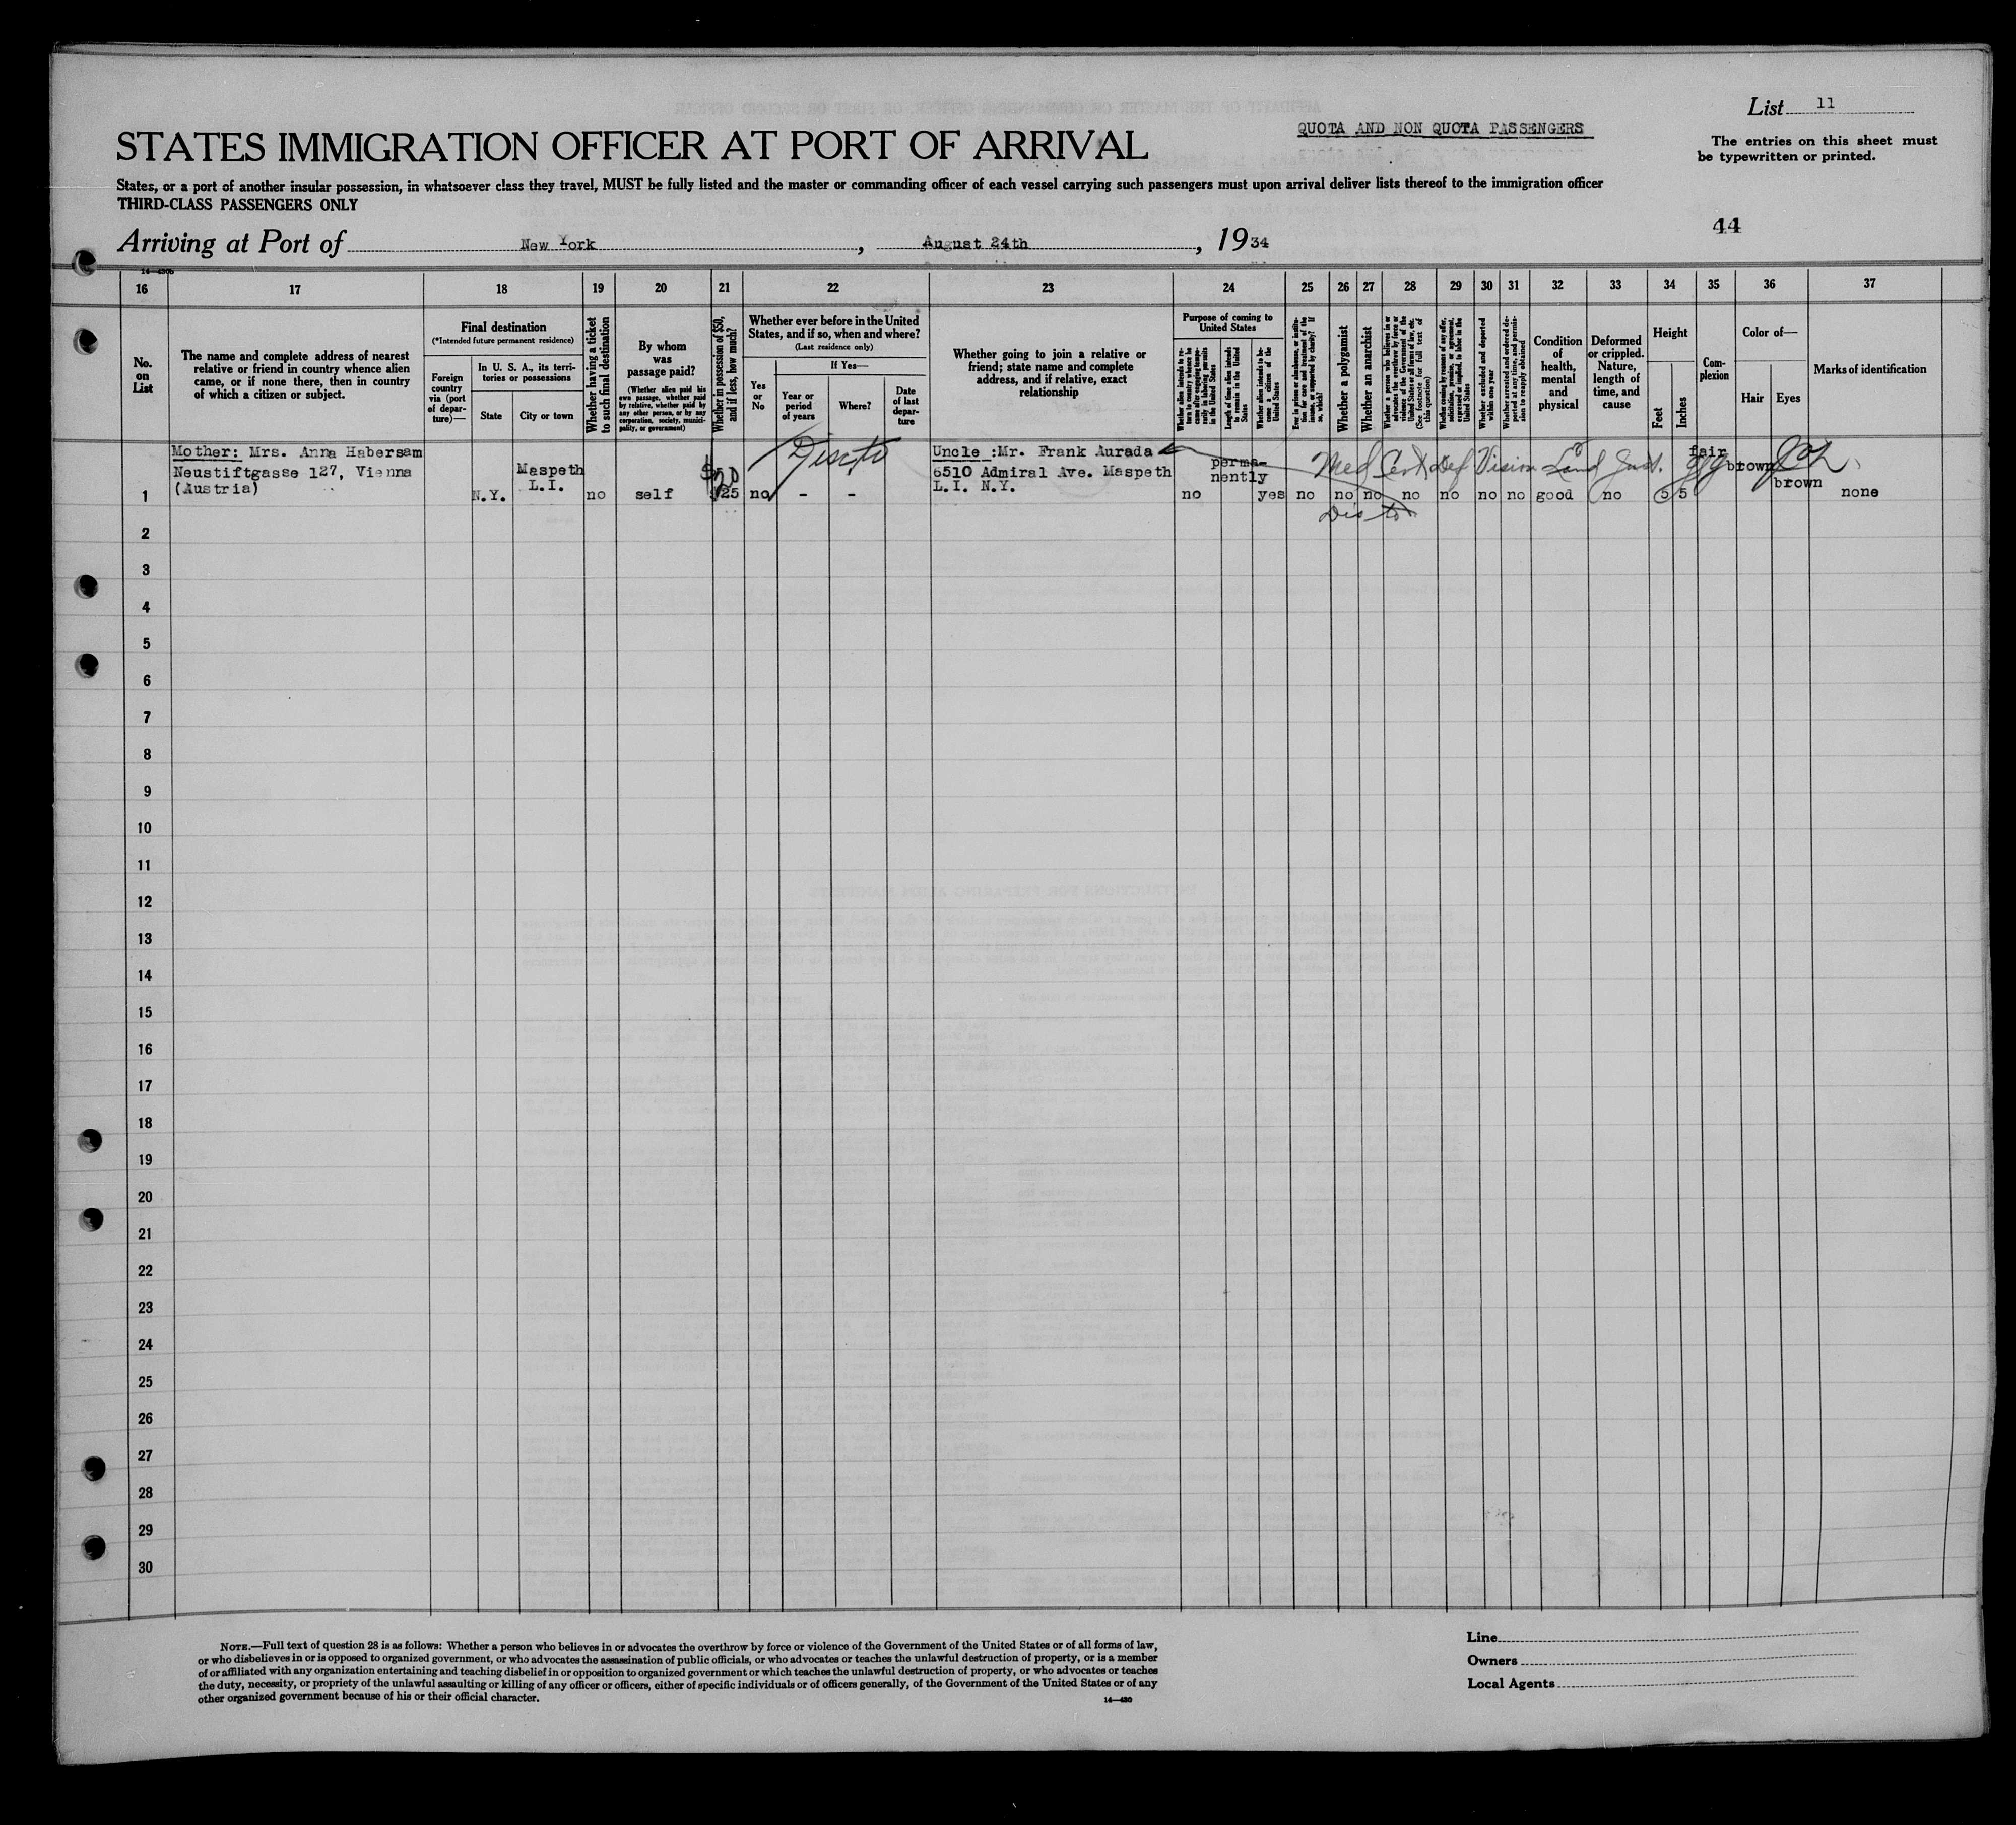 List 11
QUOTA AND NON QUOTA PASSENGERS
The entries on this sheet must
be typewritten or printed.
STATES IMMIGRATION OFFICER AT PORT OF ARRIVAL
States, or a port of another insular possession, in whatsoever class they travel, MUST be fully listed and the master or commanding officer of each vessel carrying such passengers must upon arrival deliver lists thereof to the immigration officer
THIRD-CLASS PASSENGERS ONLY
44
Arriving at Port of New York, August 24th, 1934
16 17 18 19 20 21 22 23 24 25 26 27 28 29 30 31 32 33 34 35 36 37
No.
on
List
The name and complete address of nearest
relative or friend in country whence alien
came, or if none there, then in country
of which a citizen or subject.
Final destination
(*Intended future permanent residence)
Foreign
country
via (port
of depar-
ture)—
In U. S. A., its terri-
tories or possessions
State
City or town
Whether having a ticket
to such final destination
By whom
was
passage paid?
(Whether alien paid his
own passage, whether paid
by relative, whether paid by
any other person, or by any
corporation, society, munici-
pality, or government)
Whether in possession of $50,
and if less, how much?
Whether ever before in the United
States, and if so, when and where?
(Last residence only)
Yes
or
No
If Yes—
Year or
period
of years
Where?
Date
of last
depar-
ture
Whether going to join a relative or
friend; state name and complete
address, and if relative, exact
relationship
Purpose of coming to
United States
Whether alien intends to re-
turn to country whence he
came after engaging tempo-
rarily in laboring pursuits
in the United States
Length of time alien intends
to remain in the United
States
Whether alien intends to be-
come a citizen of the
United States
Ever in prison or almshouse, or institu-
tion for care and treatment of the
insane, or supported by charity? If
so, which?
Whether a polygamist
Whether an anarchist
Whether a person who believes in or
advocates the overthrow by force or
violence of the Government of the
United States or all forms of law, etc.
(See footnote for full text of
this question)
Whether coming by reason of any offer,
solicitation, promise, or agreement,
expressed or implied, to labor in the
United States
Whether excluded and deported
within one year
Whether arrested and ordered de-
ported at any time, and permis-
sion to reapply obtained
Condition
of
health,
mental
and
physical
Deformed
or crippled.
Nature,
length of
time, and
cause
Height
Feet
Inches
Com-
plexion
Color of—
Hair
Eyes
Marks of identification
Mother: Mrs. Anna Habersam
Neustiftgasse 127, Vienna
(Austria)
1
N.Y.
Maspeth
L.I.
no
self
$50
$25
no
-
-
Uncle :Mr. Frank Aurada
6510 Admiral Ave. Maspeth
L.I. N.Y.
no
perma-
nently
yes
no
no
no
no
no
no
no
good
no
5 5
fair
brown
brown
none
Med Cert Def Vision
2
3
4
5
6
7
8
9
10
11
12
13
14
15
16
17
18
19
20
21
22
23
24
25
26
27
28
29
30
NOTE.—Full text of question 28 is as follows: Whether a person who believes in or advocates the overthrow by force or violence of the Government of the United States or of all forms of law,
or who disbelieves in or is opposed to organized government, or who advocates the assassination of public officials, or who advocates or teaches the unlawful destruction of property, or is a member
of or affiliated with any organization entertaining and teaching disbelief in or opposition to organized government or which teaches the unlawful destruction of property, or who advocates or teaches
the duty, necessity, or propriety of the unlawful assaulting or killing of any officer or officers, either of specific individuals or of officers generally, of the Government of the United States or of any
other organized government because of his or their official character.
14—430
Line
Owners
Local Agents